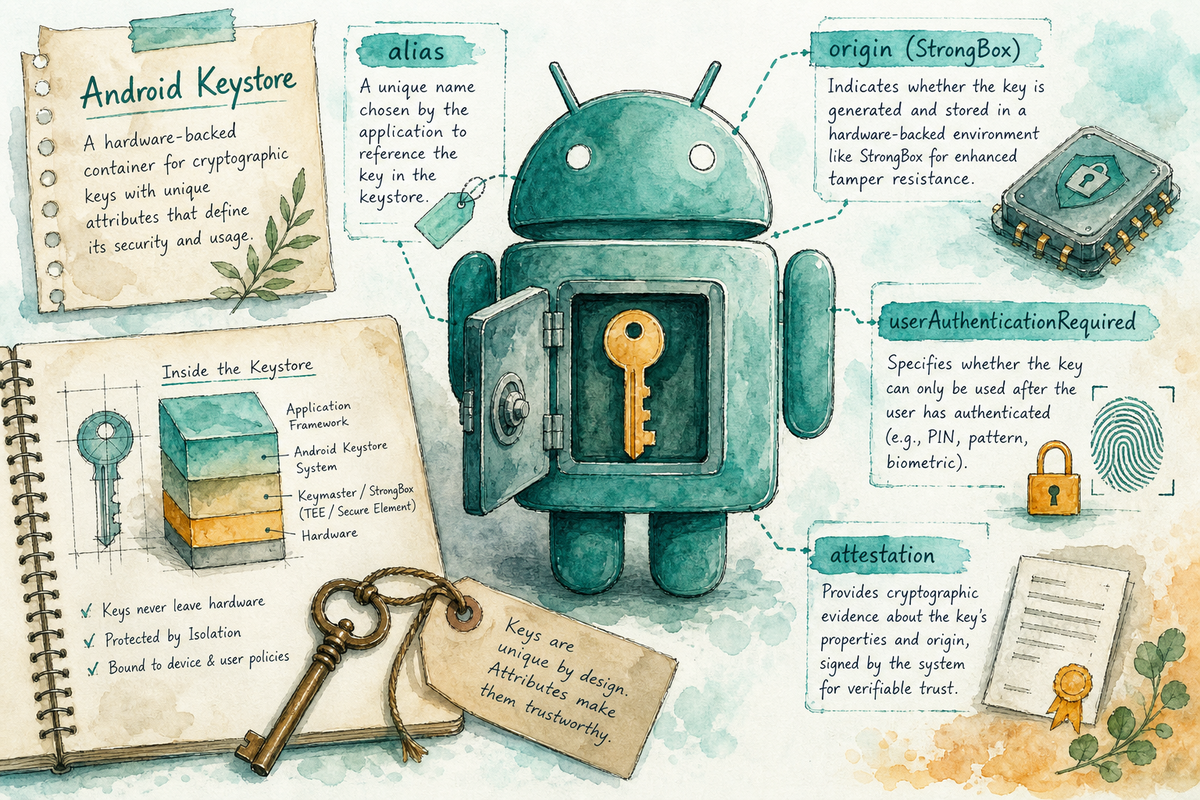 Android Keystore
A hardware-backed
container for cryptographic
keys with unique
attributes that define
its security and usage.
alias
A unique name
chosen by the
application to
reference the
key in the
keystore.
origin (StrongBox)
Indicates whether the key is
generated and stored in a
hardware-backed environment
like StrongBox for enhanced
tamper resistance.
userAuthenticationRequired
Specifies whether the key
can only be used after the
user has authenticated
(e.g., PIN, pattern,
biometric).
attestation
Provides cryptographic
evidence about the key's
properties and origin,
signed by the system
for verifiable trust.
Inside the Keystore
Application
Framework
Android Keystore
System
Keymaster / StrongBox
(TEE / Secure Element)
Hardware
Keys never leave hardware
Protected by Isolation
Bound to device & user policies
Keys are
unique by design.
Attributes make
them trustworthy.